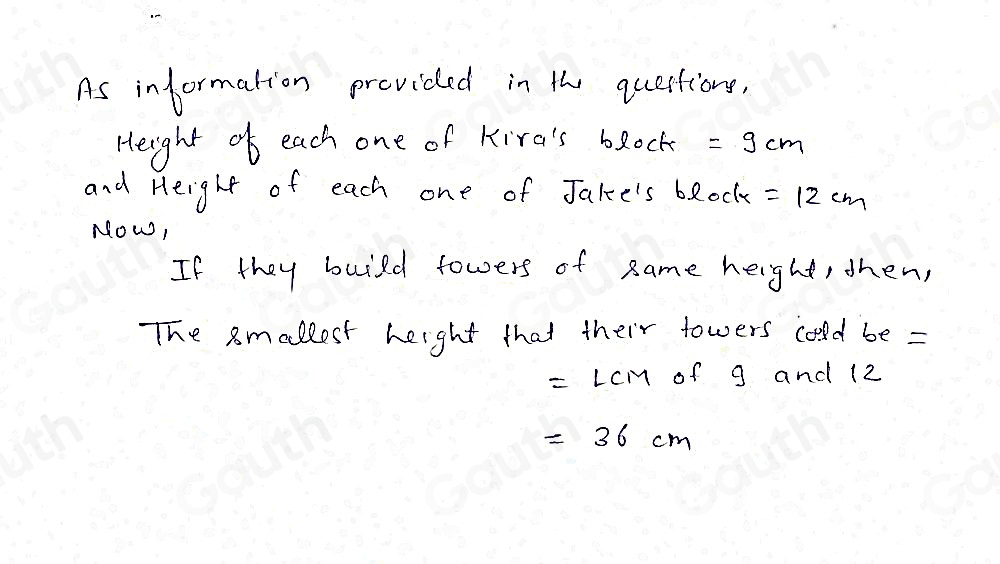 As information provided in the questions,
Height of each one of Kira's block = 9cm
and Height of each one of Jake's block = 12 cm
Now,
If they build towers of same height, then,
The smallest height that their towers could be =
= LCM of 9 and 12
= 36 cm